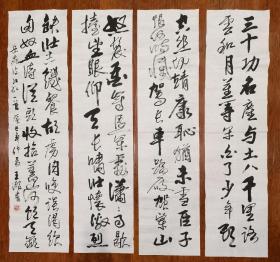 三十功名塵与土八千里路
雲和月莫等闲白了少年頭
怒髮衝冠凭阑處瀟瀟雨歇
抬望眼仰天長啸壮懷激烈
空悲切靖康恥猶未雪臣子
恨何時滅駕長車踏破賀蘭山
缺壮志饑餐胡虜肉笑談渴飲
匈奴血待從頭收拾舊山河朝天闕
岳飛滿江红一首